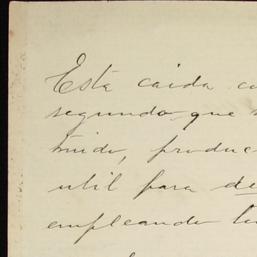 Esta caida
segundo que
produc
util para de
empleando